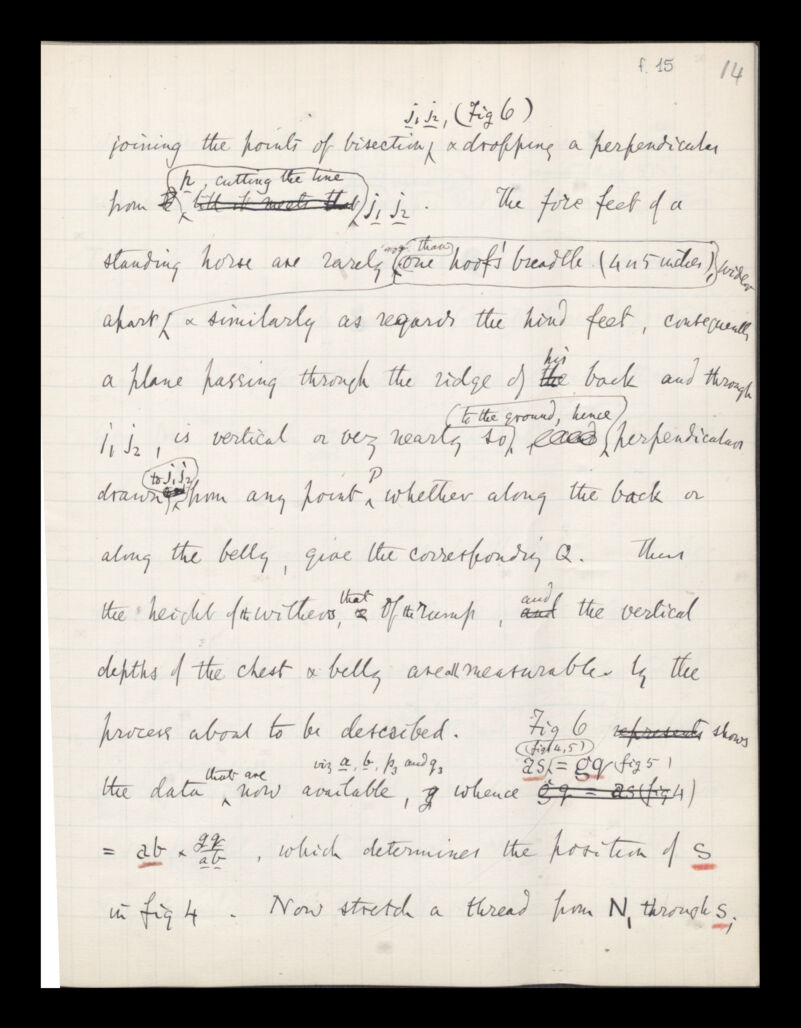 f. 15 14
j₁ j₂, (Fig 6)
joining the points of bisection, & dropping a perpendicular
p, cutting the line
from till it meets that j₁ j₂. The fore feet of a
more than
standing horse are rarely one hoof's breadth (4 or 5 inches), wider
apart, & similarly as regards the hind feet, consequently
his
a plane passing through the ridge of the back and through
to the ground, hence
j₁ j₂, is vertical or very nearly so, perpendiculars
to j₁ j₂ P
drawn from any point, whether along the back or
along the belly, give the corresponding Q. Thus
that and
the height of the withers, & of the rump, and the vertical
depths of the chest & belly are all measurable by the
process about to be described. Fig 6 represents shows
(fig 4,5)
that are viz a, b, p₃ and q₃ as = gq (fig 5)
the data now available, whence gq = as (fig 4)
= ab × gq/ab, which determines the position of S
in fig 4. Now stretch a thread from N, through S,